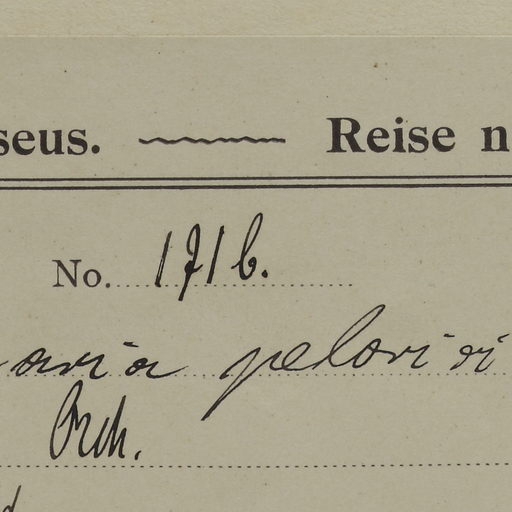 seus. Reise n
No. 171b.
aria peloriai
Orch.